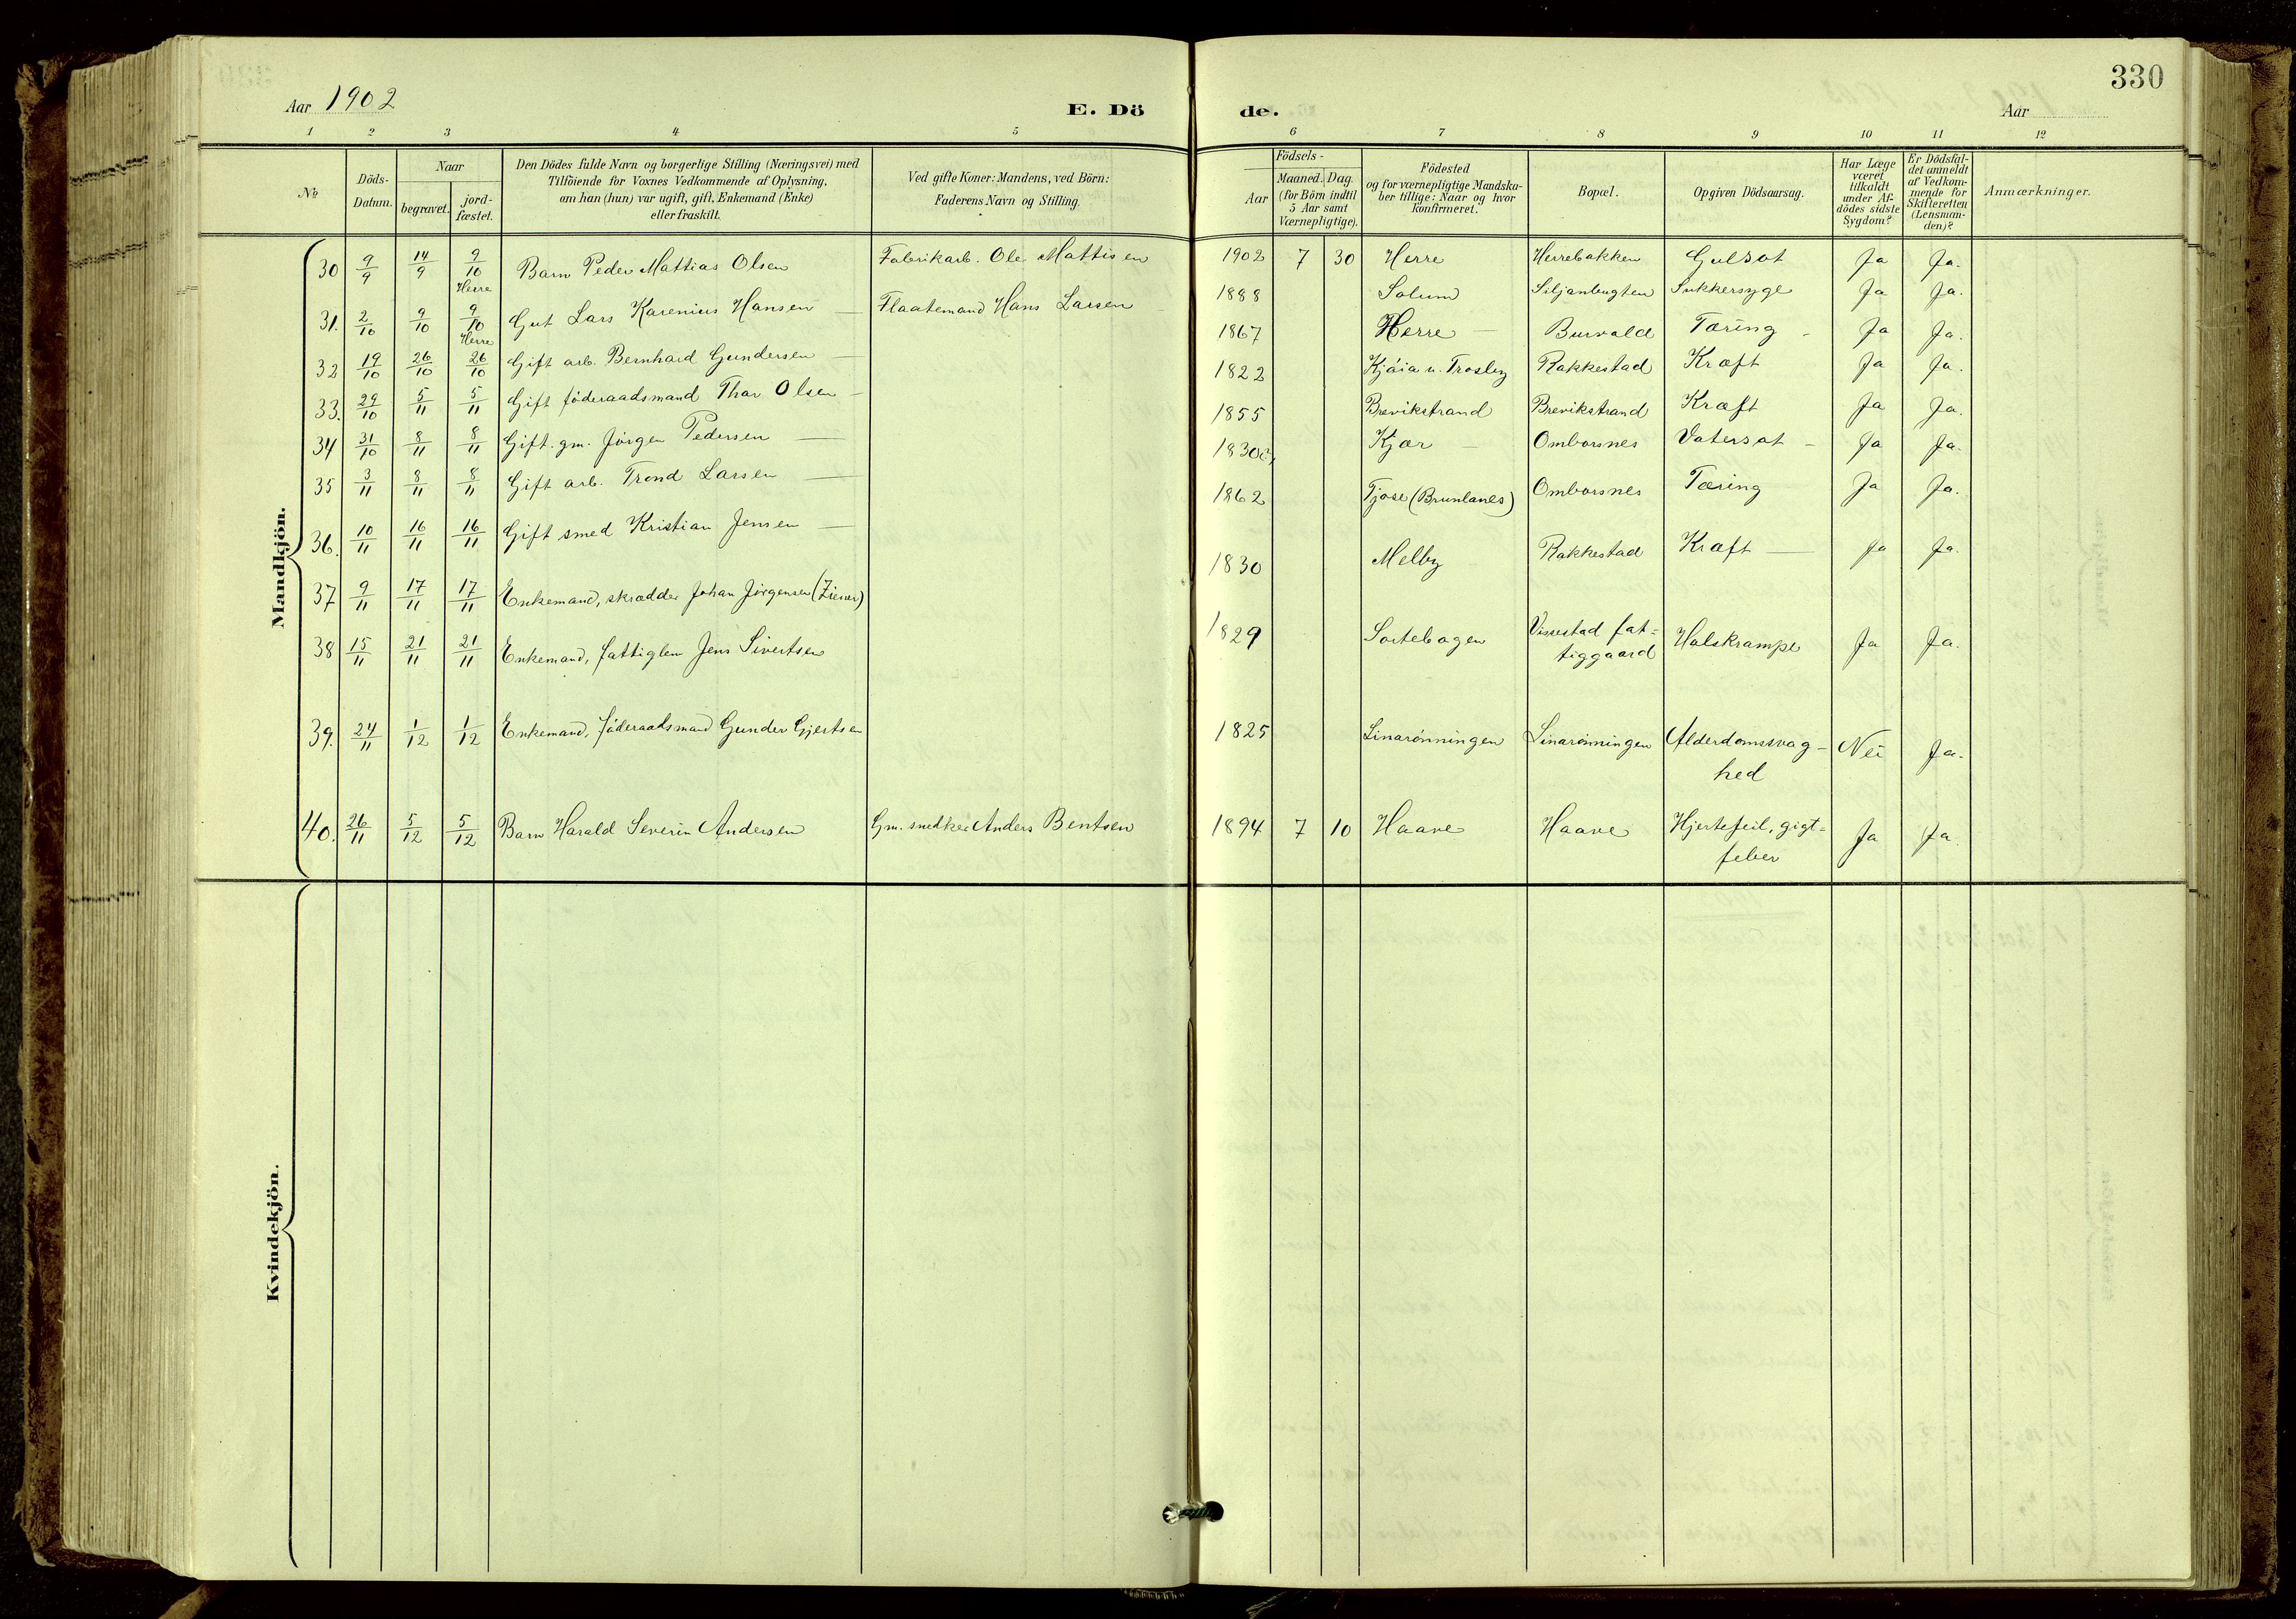 330
Aar 1902
E. Dö
de.
Aar
1 2 3 4 5 6 7 8 9 10 11 12
№
Döds-
Datum.
Naar
begravet.
jord-
fæstet.
Den Dödes fulde Navn og borgerlige Stilling (Næringsvei) med
Tilföiende for Voxnes Vedkommende af Oplysning,
om han (hun) var ugift, gift, Enkemand (Enke)
eller fraskilt.
Ved gifte Koner: Mandens, ved Börn:
Faderens Navn og Stilling.
Födsels-
Aar
Maaned. Dag.
(for Börn indtil
5 Aar samt
Værnepligtige).
Födested
og for værnepligtige Mandska-
ber tillige: Naar og hvor
konfirmeret.
Bopæl.
Opgiven Dödsaarsag.
Har Læge
været
tilkaldt
under Af-
dödes sidste
Sygdom?
Er Dödsfal-
det anmeldt
af Vedkom-
mende for
Skifteretten
(Lensman-
den)?
Anmærkninger.
Mandkjön.
30 9/9 14/9 9/10 Herre Barn Peder Mattias Olsen Fabrikarb. Ole Mattisen 1902 7 30 Herre Herrebakken Gulsot Ja Ja.
31. 2/10 9/10 9/10 Herre Gut Lars Karenius Hansen — Flaatemand Hans Larsen 1888 Solum Siljanbugten Sukkersyge Ja Ja.
32 19/10 26/10 26/10 Gift arb. Bernhard Gundersen — 1867 Herre — Burvald Tæring - Ja Ja.
33. 29/10 5/11 5/11 Gift föderaadsmand Thor Olsen — 1822 Kjáia u. Trosby Rakkestad Kræft Ja Ja.
34 31/10 8/11 8/11 Gift. gm. Jörgen Pedersen — 1855 Brevikstrand Brevikstrand Kræft Ja Ja.
35 3/11 8/11 8/11 Gift arb. Trond Larsen — 1830 Kjær — Omborsnes Vatersot - Ja Ja.
36. 10/11 16/11 16/11 Gift smed Kristian Jensen — 1862 Tjose (Brunlanes) Omborsnes Tæring Ja Ja.
37 9/11 17/11 17/11 Enkemand, skrædder Johan Jörgensen 1830 Melby Rakkestad Kræft — Ja Ja.
38 15/11 21/11 21/11 Enkemand, fattiglem Jens Sivertsen 1829 Sortebogen Vissestad fat=
tiggaard Halskrampe Ja Ja.
39. 24/11 1/12 1/12 Enkemand, föderaadsmand Gunder Gjertsen 1825 Linarönningen Linarönningen Alderdomssvag-
hed Nei Ja.
40. 26/11 5/12 5/12 Barn Harald Severin Andersen Gm. snedker Anders Bentsen 1894 7 10 Haave Haave Hjertefeil, gigt=
feber Ja Ja.
Kvindekjön.